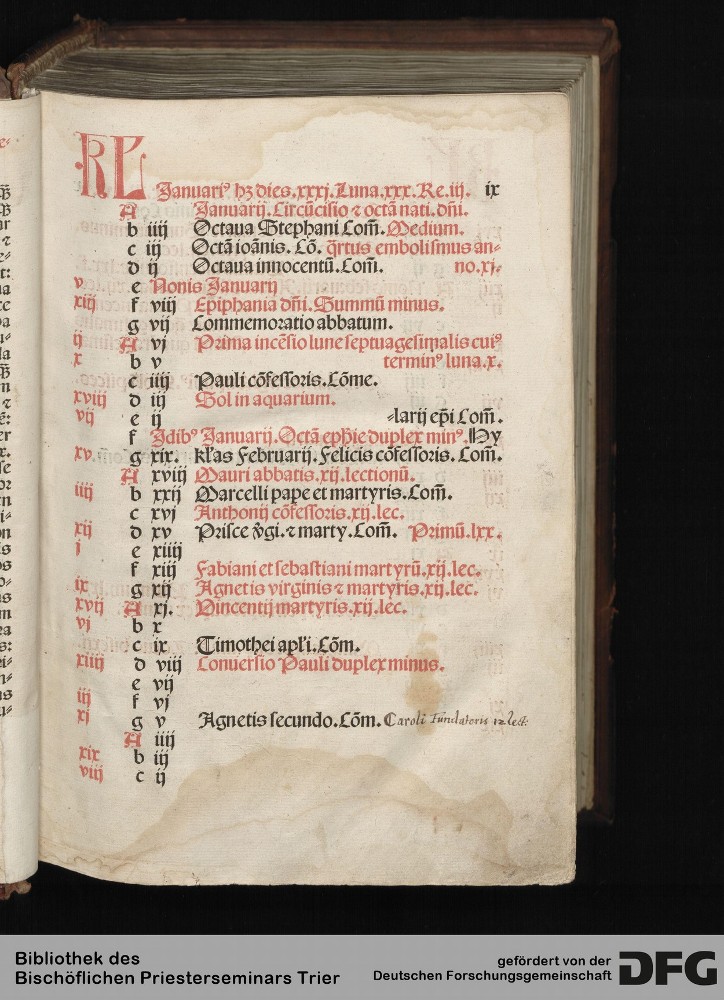 KL
Januari⁹ hz dies.xxxj.Luna.xxx.Re.iij. ix
A Januarij.Circūcisio ⁊ octā nati.dn̄i.
b iiij Octaua Stephani Com̄.Medium.
c iij Octā ioānis.Cō. q̄rtus embolismus an-
d ij Octaua innocentū.Com̄. no.xj.
v. e Nonis Januarij
xiij f viij Epīphania dn̄i.Summū minus.
g vij Commemoratio abbatum.
ij A vj Prima incēsio lune septuagesimalis cui⁹
x b v termin⁹ luna.x.
c iiij Pauli cōfessoris.Cōme.
xviij d iij Sol in aquarium.
vij e ij -larij ep̄i Com̄.
f Idib⁹ Januarij.Octā ep̄hie duplex min⁹.Hy
xv. g xix. kl'as Februarij.Felicis cōfessoris.Com̄.
A xviij Mauri abbatis.xij.lectionū.
iiij b xxij Marcelli pape et martyris.Com̄.
c xvj Anthonij cōfessoris.xij.lec.
xij d xv Prisce v̄gi.⁊ marty.Com̄. Primū.lxx.
j e xiiij
f xiij Fabiani et sebastiani martyrū.xij.lec.
ix g xij Agnetis virginis ⁊ martyris.xij.lec.
xvij A xj. Vincentij martyris.xij.lec.
vj b x
c ix Timothei apl'i.Cōm.
xiiij d viij Conuersio Pauli duplex minus.
e vij
iij f vj
xj g v Agnetis secundo.Cōm. Caroli Fundatoris 12 lect.
A iiij
xix b iij
viij c ij
Bibliothek des
Bischöflichen Priesterseminars Trier
gefördert von der
Deutschen Forschungsgemeinschaft DFG